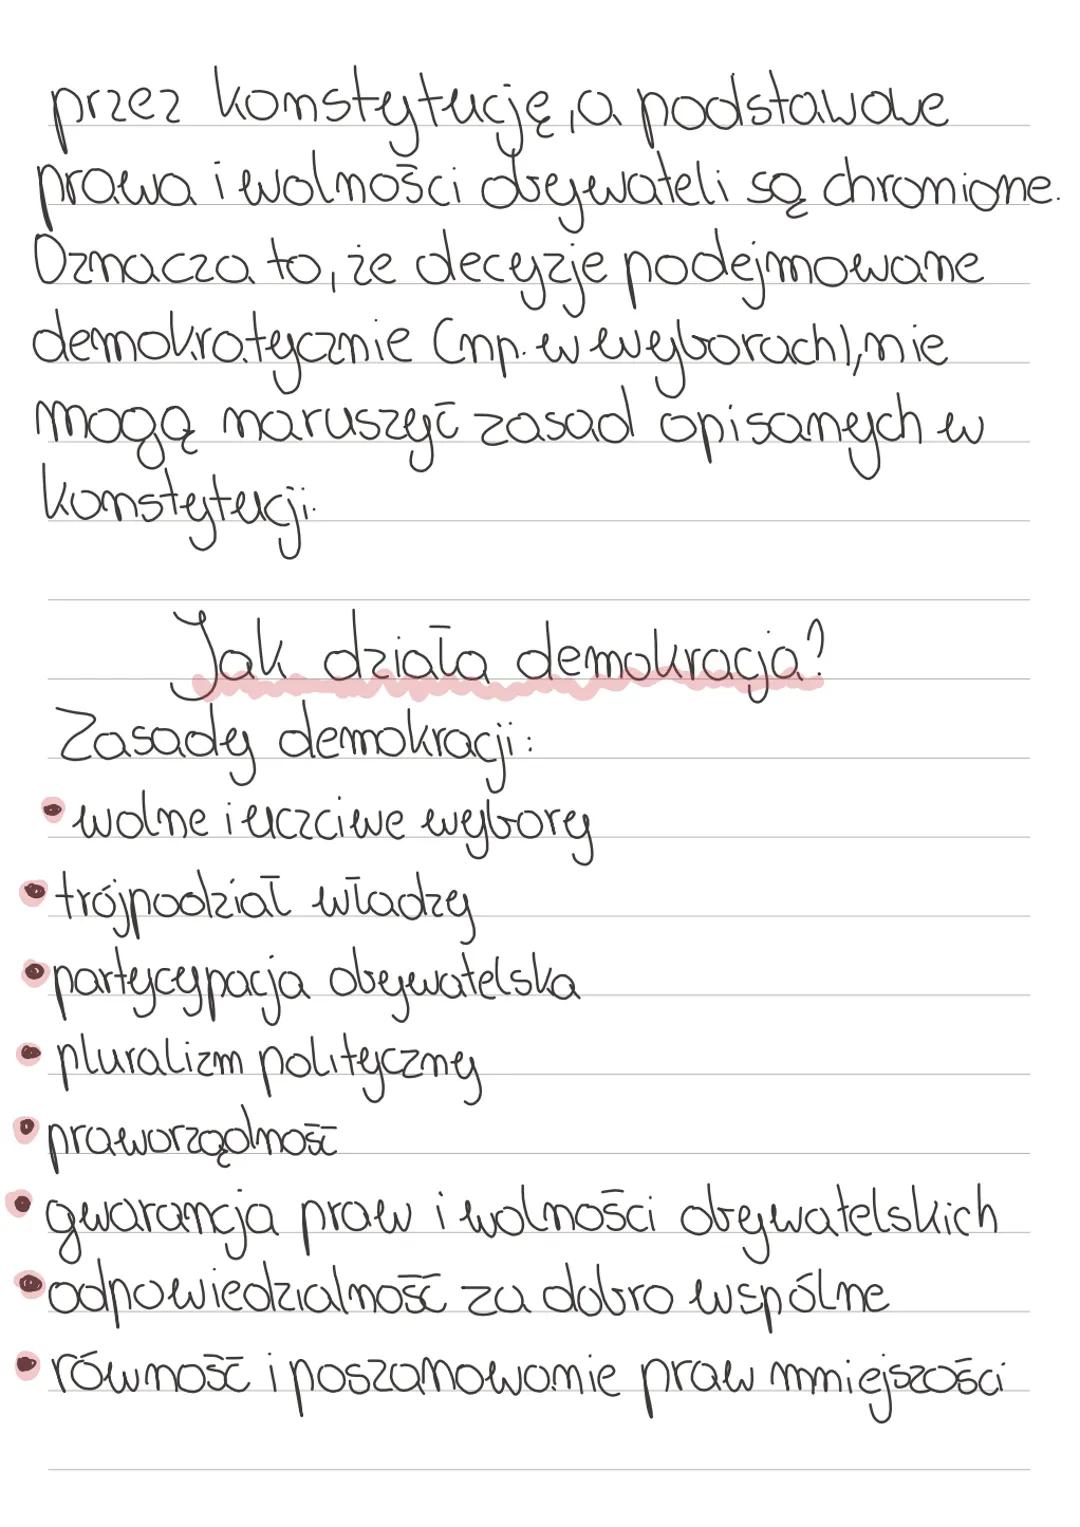 przez konstytucję, a podstawowe
prawa i wolności obywateli są chronione.
Oznacza to, że decyzje podejmowane
demokratycznie (np. w wyborach), nie
mogą naruszyć zasad opisanych w
konstytucji.
Jak działa demokracja?
Zasady demokracji:
• wolne i uczciwe wybory
• trójpodział władzy
• partycypacja obywatelska
• pluralizm polityczny
• praworządność
• gwarancja praw i wolności obywatelskich
• odpowiedzialność za dobro wspólne
• równość i poszanowanie praw mniejszości